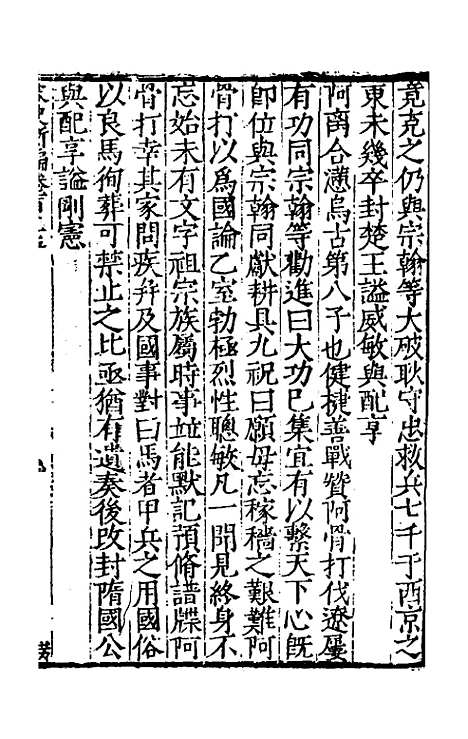 竟克之仍與宗翰等大破耿守忠救兵七千于西京之
東未幾卒封楚王謚威敏與配享
阿离合懣烏古第八子也健捷善戰贊阿骨打伐遼屢
有功同宗翰等勸進曰大功已集宜有以繫天下心旣
卽位與宗翰同獻耕具九祝曰願毋忘稼穡之艱難阿
骨打以爲國論乙室勃極烈性聰敏凡一聞見終身不
忘始未有文字祖宗族屬時事竝能默記預脩譜牒阿
骨打幸其家問疾幷及國事對曰馬者甲兵之用國俗
以良馬徇葬可禁止之比亟猶有遺奏後改封隋國公
與配享謚剛憲
史新編卷百